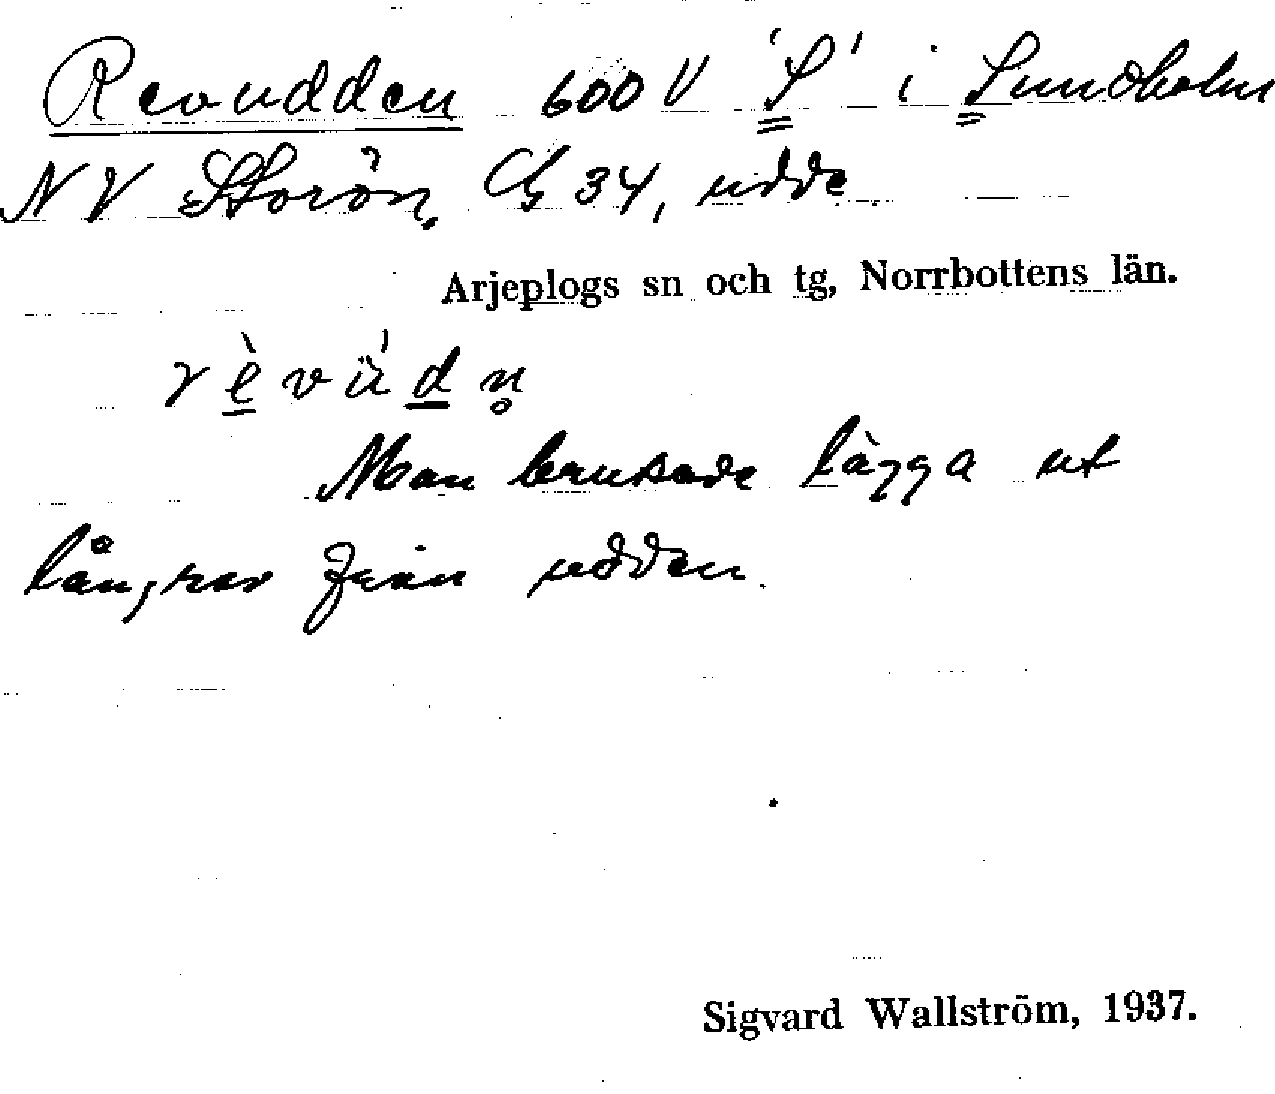 Revudden 600 V 'S' i Sundholm
NV Storön, 34, udde
Arjeplogs sn och tg, Norrbottens län.
rèvǘdn̥
Man brukade lägga ut
långrev från udden.
Sigvard Wallström, 1937.